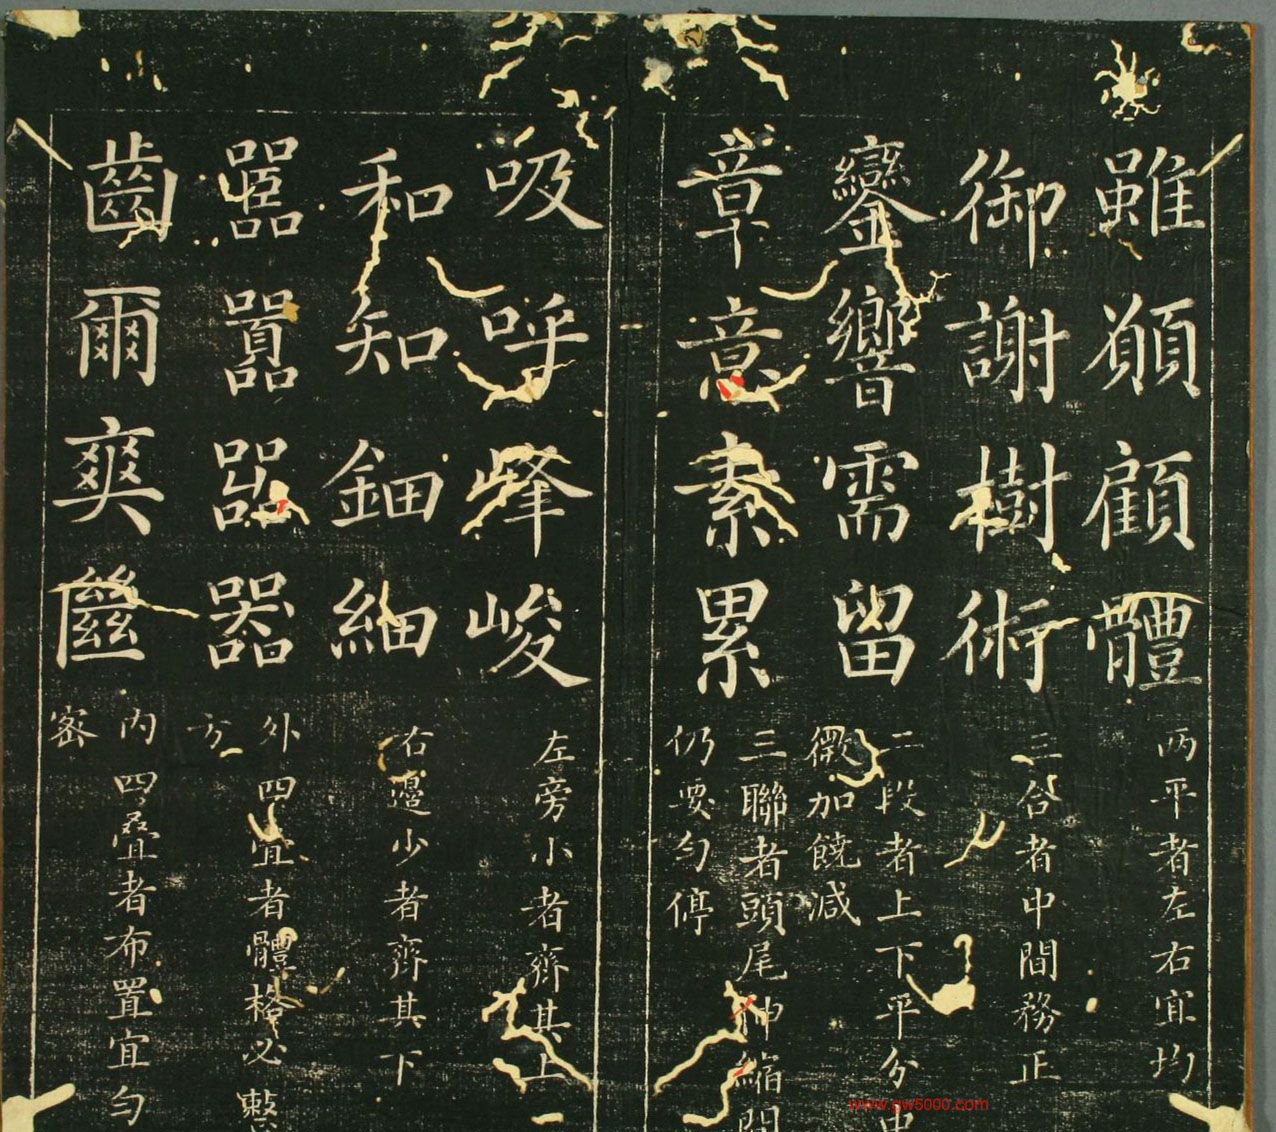 雖顧體
两平者左右宜均
御謝樹術
三合者中間務正
鑾響需留
二段者上下平分中
微加饒減
章意素累
三聯者頭尾伸縮間
仍要勻停
吸呼峰峻
左旁小者齊其上
和知鈿細
右邊少者齊其下
嚚囂器
外四宜者體格必整
方
齒爾爽
内四叠者布置宜勻
密
www.gw5000.com